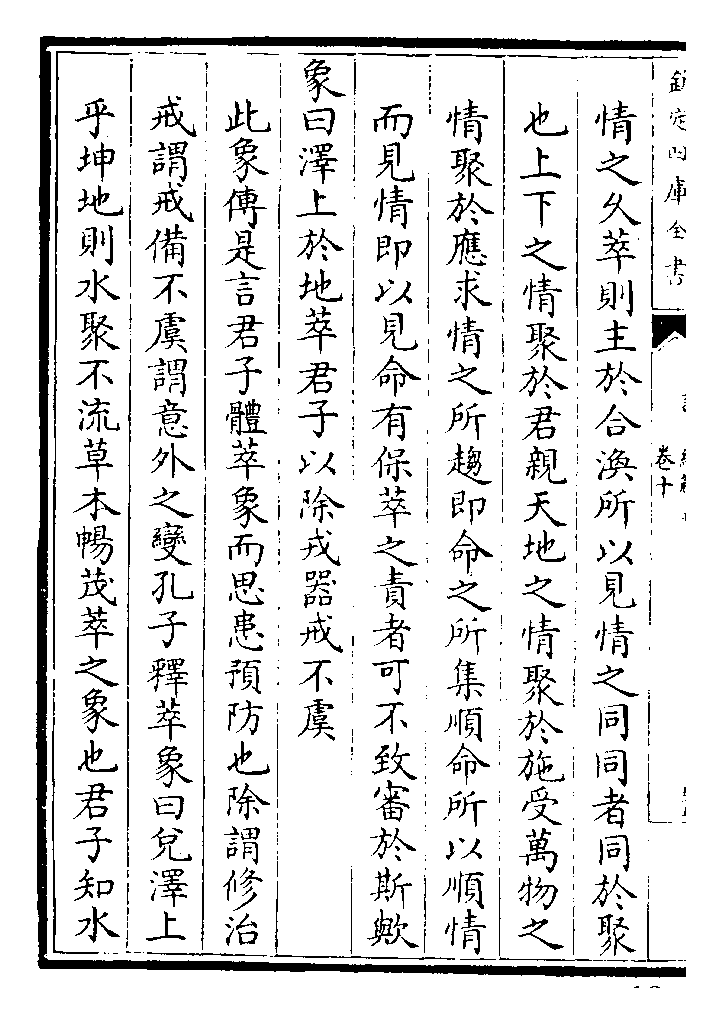 欽定四庫全書
卷十
情之久萃則主於合渙所以見情之同同者同於聚
也上下之情聚於君親天地之情聚於施受萬物之
情聚於應求情之所趨即命之所集順命所以順情
而見情即以見命有保萃之責者可不致審於斯歟
象曰澤上於地萃君子以除戎器戒不虞
此象傳是言君子體萃象而思患預防也除謂修治
戒謂戒備不虞謂意外之變孔子釋萃象曰兌澤上
乎坤地則水聚不流草本暢茂萃之象也君子知水